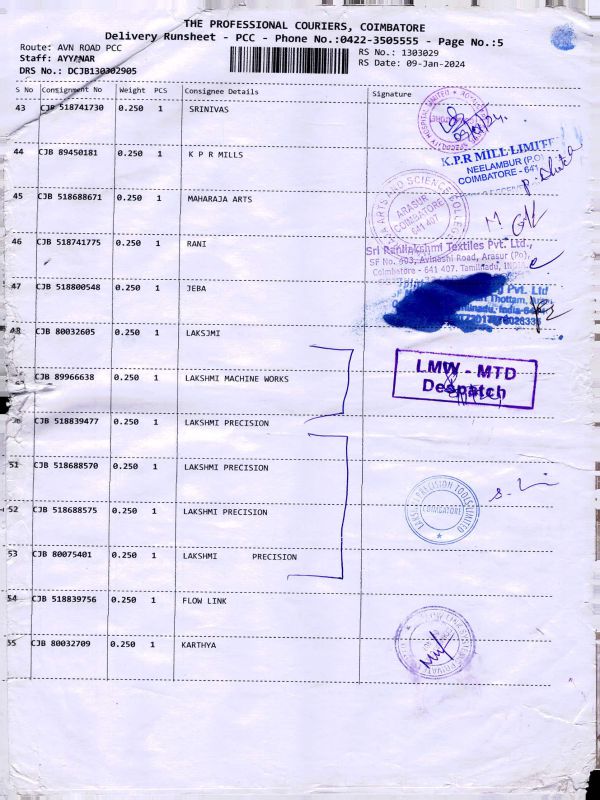 THE PROFESSIONAL COURIERS, COIMBATORE
Delivery Runsheet - PCC - Phone No.:0422-3505555 - Page No.:5
Route: AVN ROAD PCC
RS No.: 1303029
Staff: AYYANAR
RS Date: 09-Jan-2024
DRS No.: DCJB130302905
S No Consignment No Weight PCS Consignee Details Signature
43 CJB 518741730 0.250 1 SRINIVAS
44 CJB 89450181 0.250 1 K P R MILLS
K.P.R MILL LIMITED
NEELAMBUR (P.O)
COIMBATORE - 641
45 CJB 518688671 0.250 1 MAHARAJA ARTS
ARTS AND SCIENCE COLLEGE
ARASUR
COIMBATORE
641 407
46 CJB 518741775 0.250 1 RANI
Sri Ranilakshmi Textiles Pvt. Ltd.,
SF No. 603, Avinashi Road, Arasur (Po),
Coimbatore - 641 407. Tamilnadu, INDIA
47 CJB 518800548 0.250 1 JEBA
Pvt. Ltd
Thottam,
India
48 CJB 80032605 0.250 1 LAKSJMI
CJB 89966638 0.250 1 LAKSHMI MACHINE WORKS
LMW - MTD
Despatch
50 CJB 518839477 0.250 1 LAKSHMI PRECISION
51 CJB 518688570 0.250 1 LAKSHMI PRECISION
52 CJB 518688575 0.250 1 LAKSHMI PRECISION
PRECISION TOOLS LIMITED
COIMBATORE
53 CJB 80075401 0.250 1 LAKSHMI PRECISION
54 CJB 518839756 0.250 1 FLOW LINK
55 CJB 80032709 0.250 1 KARTHYA